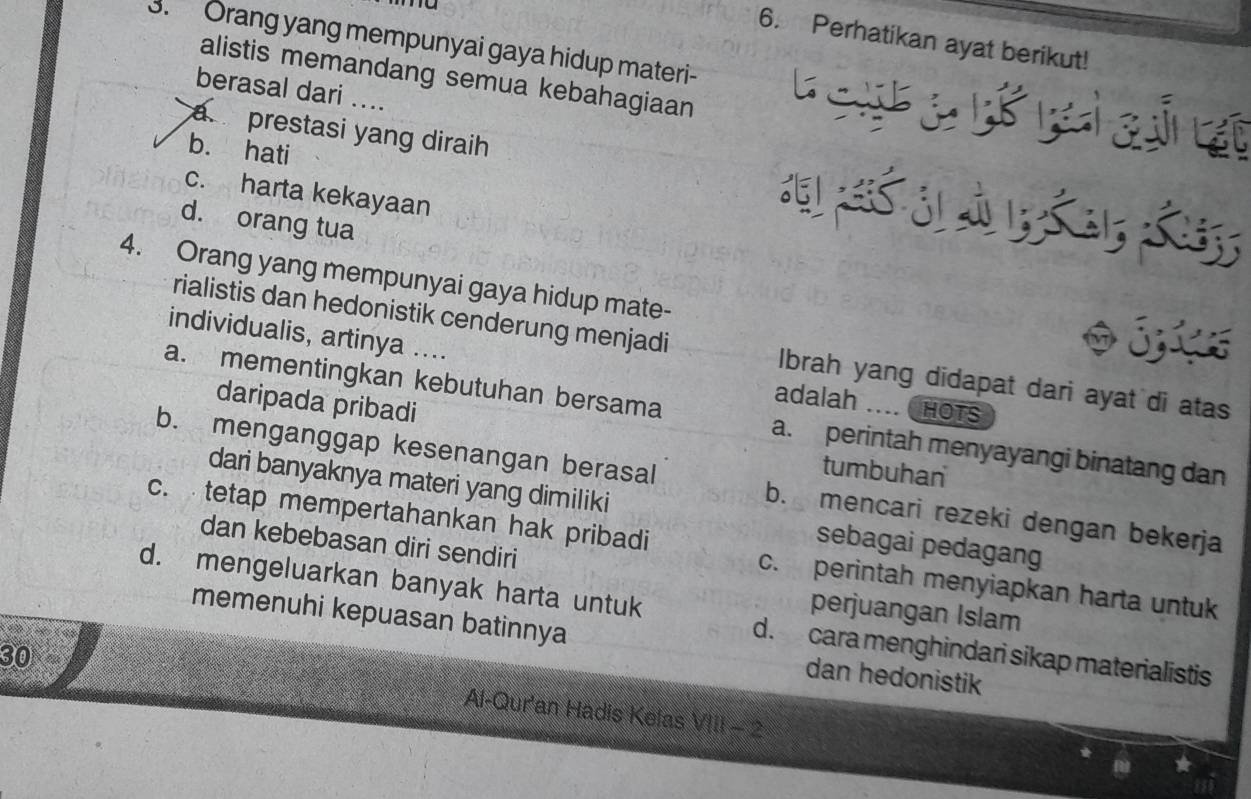 3. Orang yang mempunyai gaya hidup materi-
alistis memandang semua kebahagiaan
berasal dari ....
a. prestasi yang diraih
b. hati
c. harta kekayaan
d. orang tua
4. Orang yang mempunyai gaya hidup mate-
rialistis dan hedonistik cenderung menjadi
individualis, artinya ....
a. mementingkan kebutuhan bersama
daripada pribadi
b. menganggap kesenangan berasal
dari banyaknya materi yang dimiliki
c. tetap mempertahankan hak pribadi
dan kebebasan diri sendiri
d. mengeluarkan banyak harta untuk
memenuhi kepuasan batinnya
6. Perhatikan ayat berikut!
يٰٓاَيُّهَا الَّذِيْنَ اٰمَنُوْا كُلُوْا مِنْ طَيِّبٰتِ مَا
رَزَقْنٰكُمْ وَاشْكُرُوْا لِلّٰهِ اِنْ كُنْتُمْ اِيَّاهُ
تَعْبُدُوْنَ ١٧٢
Ibrah yang didapat dari ayat di atas
adalah .... HOTS
a. perintah menyayangi binatang dan
tumbuhan
b. mencari rezeki dengan bekerja
sebagai pedagang
c. perintah menyiapkan harta untuk
perjuangan Islam
d. cara menghindari sikap materialistis
dan hedonistik
30
Al-Qur'an Hadis Kelas VIII – 2